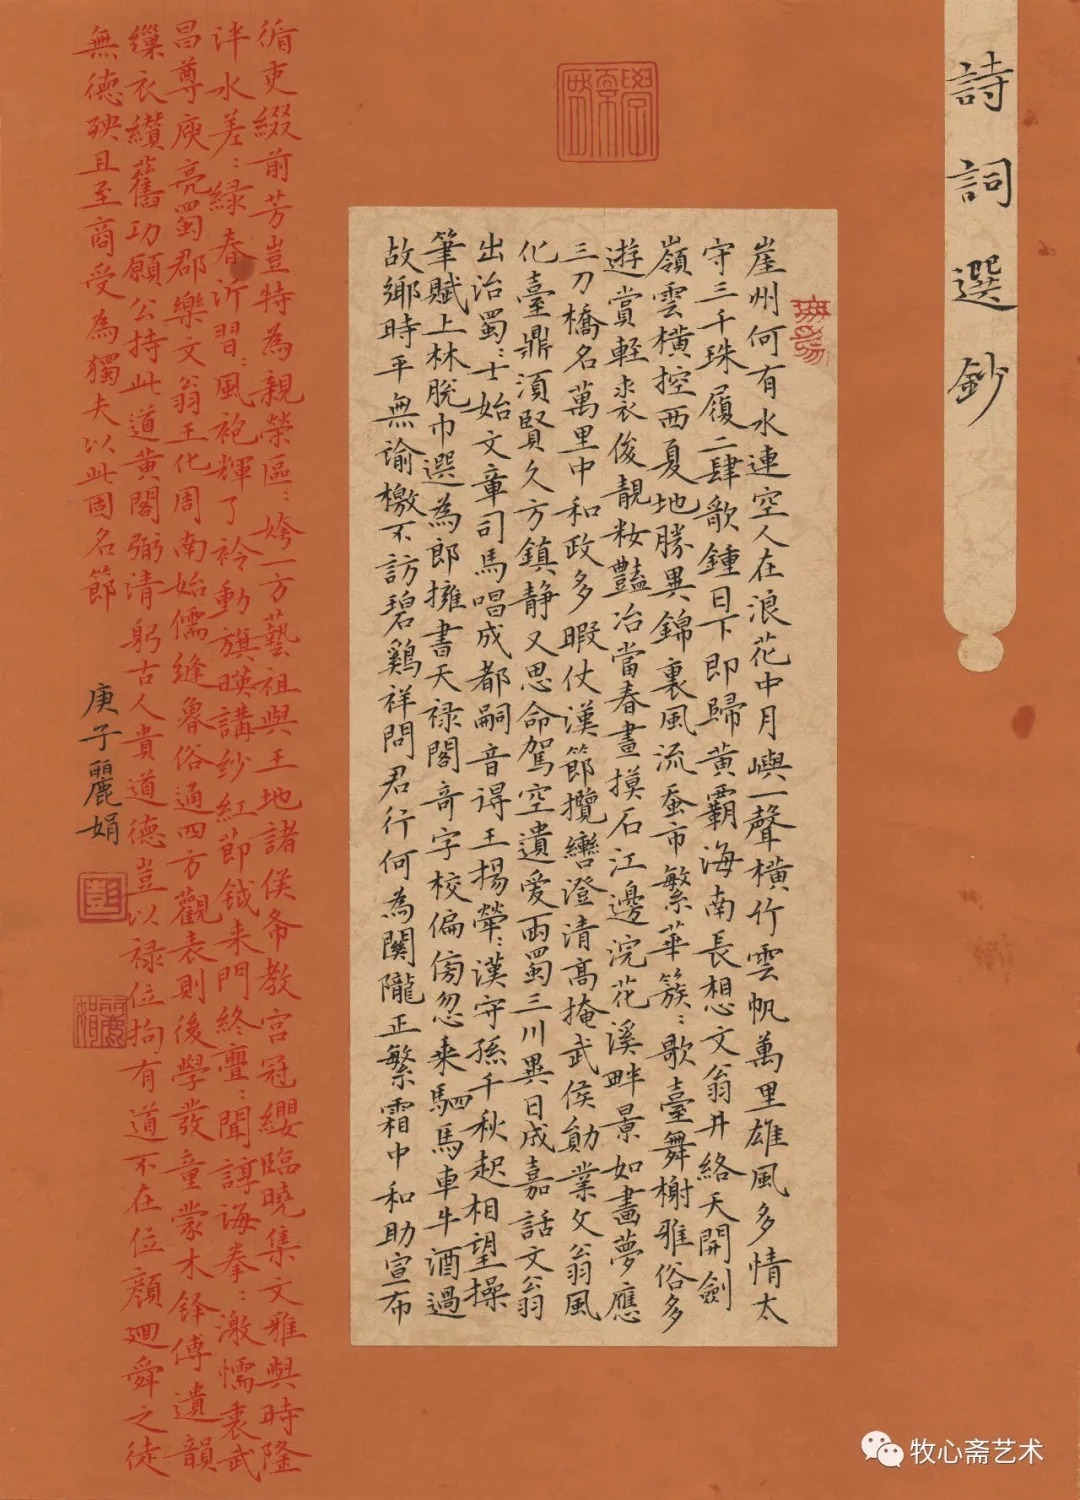 詩詞選鈔
崖州何有水連空人在浪花中月嶼一聲橫竹雲帆萬里雄風多情太
守三千珠履二肆歌鍾日下即歸黃霸海南長想文翁井絡天開劍
嶺雲橫控西夏地勝異錦裏風流蚕市繁華簇〻歌臺舞榭雅俗多
遊賞輕裘俊靚粧豔冶當春晝摸石江邊浣花溪畔景如畫夢應
三刀橋名萬里中和政多暇仗漢節攬轡澄清高掩武侯勛業文翁風
化臺鼎須賢久方鎮静又思命駕空遺爱兩蜀三川異日成嘉話文翁
出治蜀〻士始文章司馬唱成都嗣音得王揚犖〻漢守孫千秋起相望操
筆賦上林脫巾選為郎擁書天禄閣奇字校偏傍忽乘駟馬車牛酒過
故鄉時平無諭檄不訪碧鷄祥問君行何為關隴正繁霜中和助宣布
循吏綴前芳豈特為親榮區〻姱一方藝祖與王地諸侯帝教宫冠纓臨曉集文雅與時隆
泮水差〻緑春沂習〻風袍輝了衿動旗暎講紗紅節鉞来門終亹〻聞諄海拳〻激懦衷武
昌尊庾亮蜀郡樂文翁王化周南始儒縫魯俗通四方觀表則後學發童蒙木鐸傅遺韻
緇衣纘舊功願公持此道黄閣弼清躬古人貴道德豈以禄位拘有道不在位顔廻舜之徒
無德殃且至商受為獨夫以此固名節
庚子麗娟
牧心斋艺术